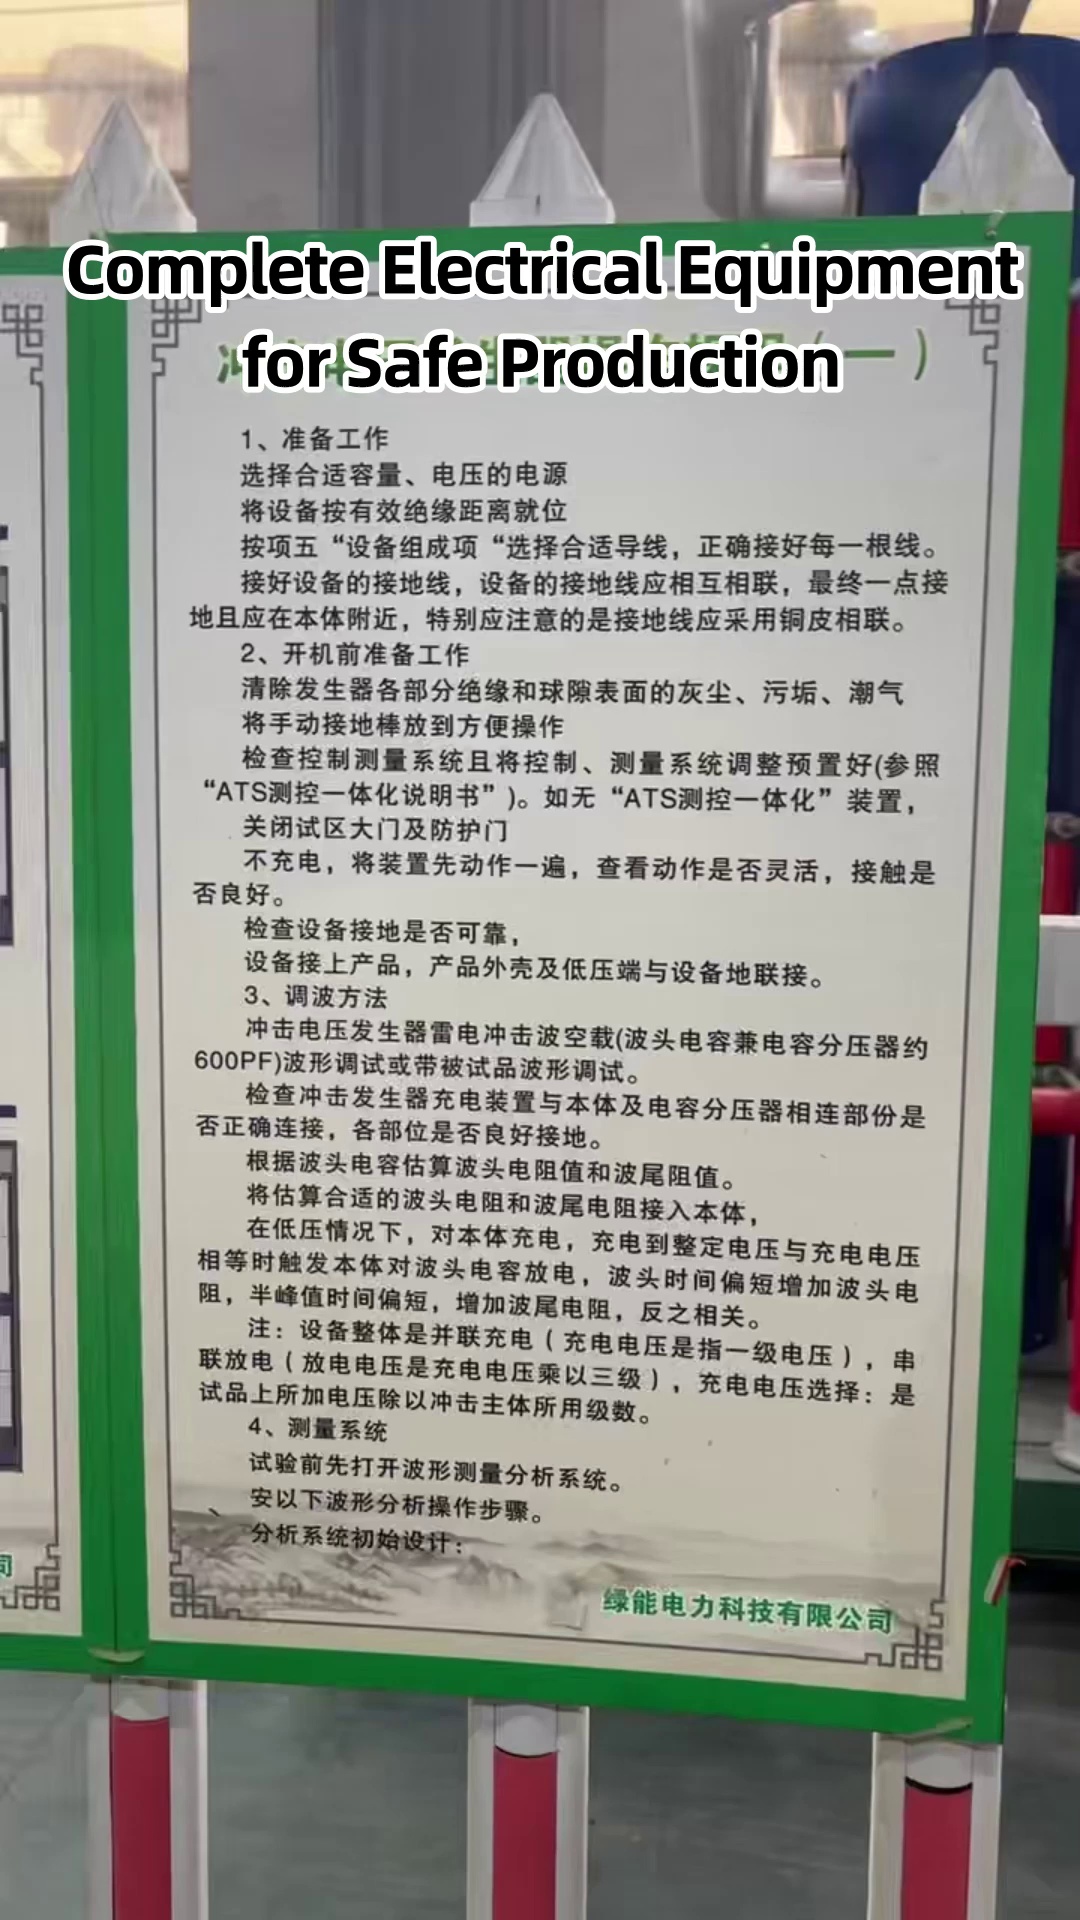 Complete Electrical Equipment
for Safe Production
（一）
1、准备工作
选择合适容量、电压的电源
将设备按有效绝缘距离就位
按项五“设备组成项“选择合适导线，正确接好每一根线。
接好设备的接地线，设备的接地线应相互相联，最终一点接
地且应在本体附近，特别应注意的是接地线应采用铜皮相联。
2、开机前准备工作
清除发生器各部分绝缘和球隙表面的灰尘、污垢、潮气
将手动接地棒放到方便操作
检查控制测量系统且将控制、测量系统调整预置好(参照
“ATS测控一体化说明书”)。如无“ATS测控一体化”装置，
关闭试区大门及防护门
不充电，将装置先动作一遍，查看动作是否灵活，接触是
否良好。
检查设备接地是否可靠，
设备接上产品，产品外壳及低压端与设备地联接。
3、调波方法
冲击电压发生器雷电冲击波空载(波头电容兼电容分压器约
600PF)波形调试或带被试品波形调试。
检查冲击发生器充电装置与本体及电容分压器相连部份是
否正确连接，各部位是否良好接地。
根据波头电容估算波头电阻值和波尾阻值。
将估算合适的波头电阻和波尾电阻接入本体，
在低压情况下，对本体充电，充电到整定电压与充电电压
相等时触发本体对波头电容放电，波头时间偏短增加波头电
阻，半峰值时间偏短，增加波尾电阻，反之相关。
注：设备整体是并联充电（充电电压是指一级电压），串
联放电（放电电压是充电电压乘以三级），充电电压选择：是
试品上所加电压除以冲击主体所用级数。
4、测量系统
试验前先打开波形测量分析系统。
安以下波形分析操作步骤。
分析系统初始设计：
绿能电力科技有限公司
司